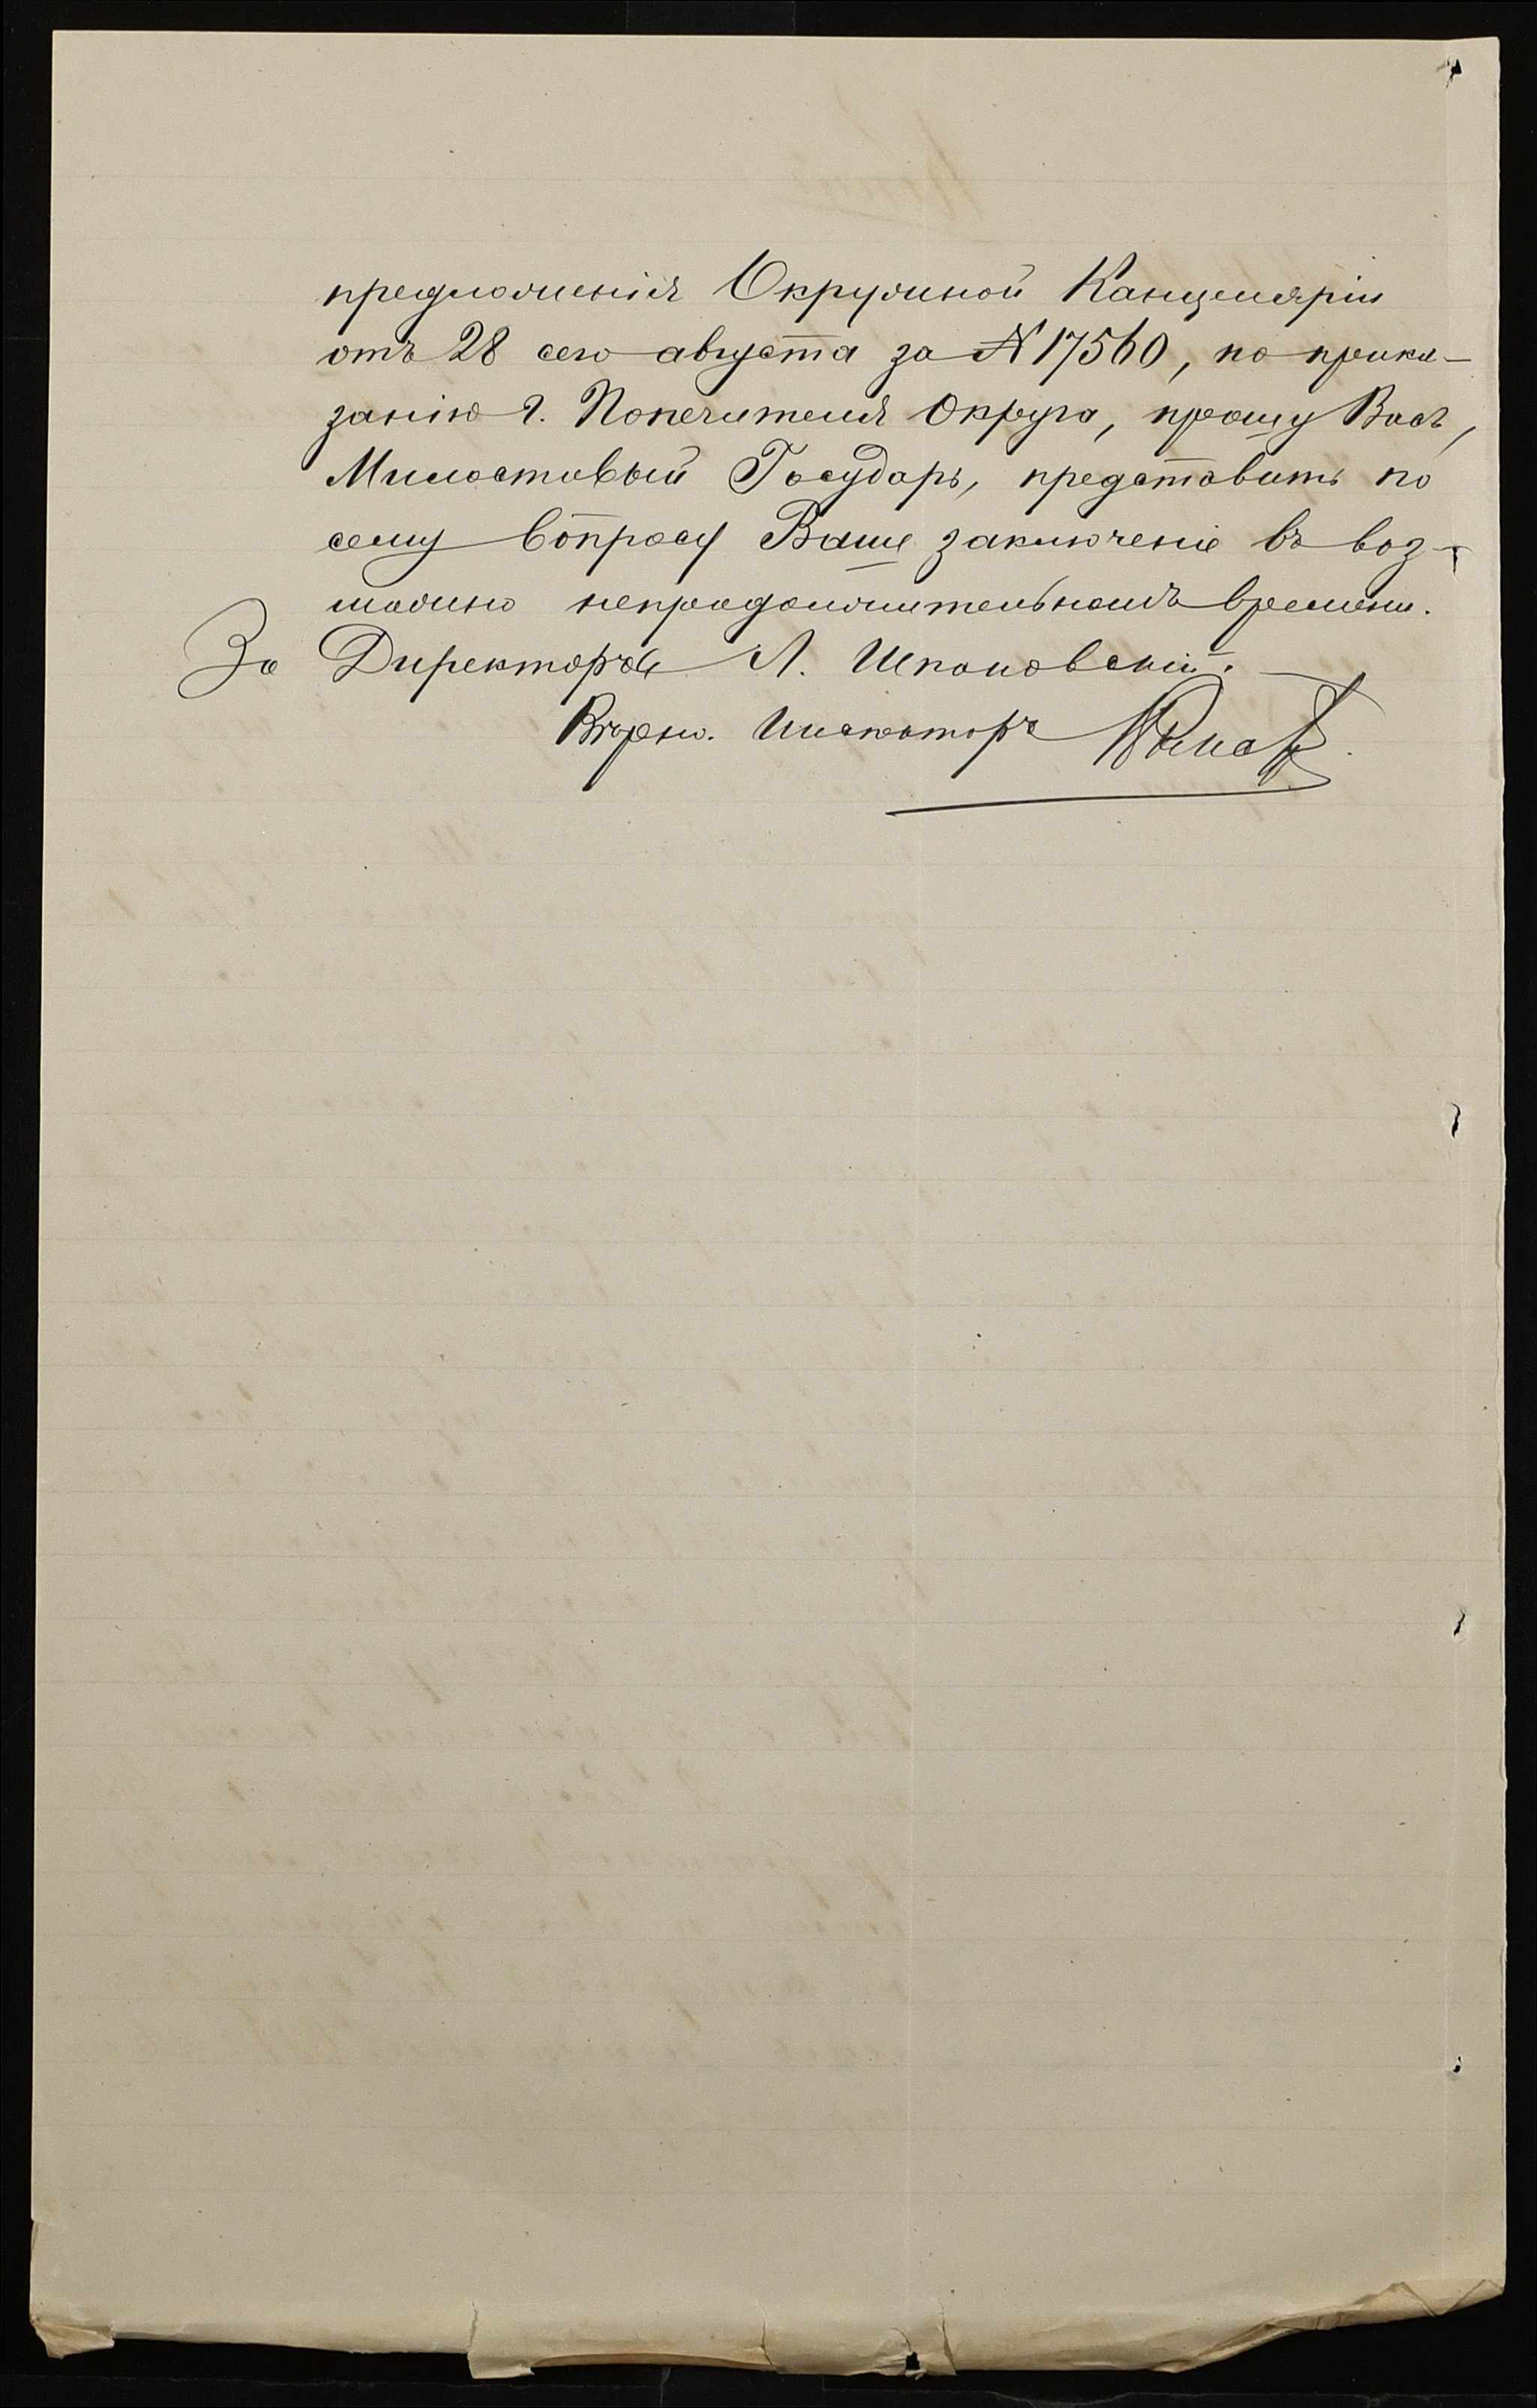 предложенія Окружной Канцеляріи
отъ 28 сего августа за № 17560, по прика-
занію г. Попечителя Округа, прошу Васъ,
Милостивый Государь, представить по
сему вопросу Ваше заключеніе въ воз-
можно непродолжительномъ времени.
За Директора Л. Шполовскій.
Вѣрно. Инспекторъ